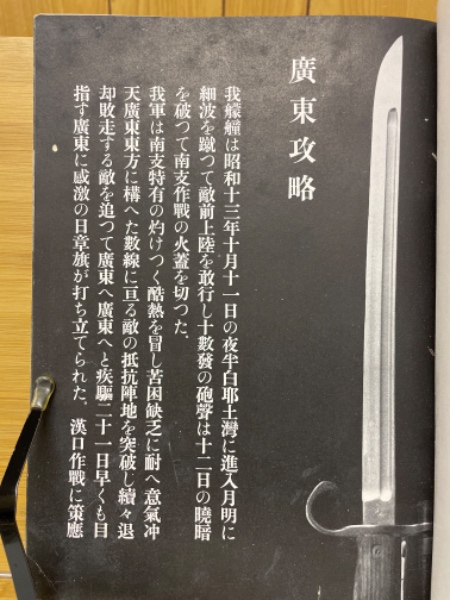 廣東攻略
我艨艟は昭和十三年十月十一日の夜半白耶土灣に進入月明に
細波を蹴つて敵前上陸を敢行し十數發の砲聲は十二日の曉暗
を破つて南支作戰の火蓋を切つた.
我軍は南支特有の灼けつく酷熱を冒し苦困缺乏に耐へ意氣冲
天廣東東方に構へた數線に亘る敵の抵抗陣地を突破し續々退
却敗走する敵を追つて廣東へ廣東へと疾驅二十一日早くも目
指す廣東に感激の日章旗が打ち立てられた. 漢口作戰に策應